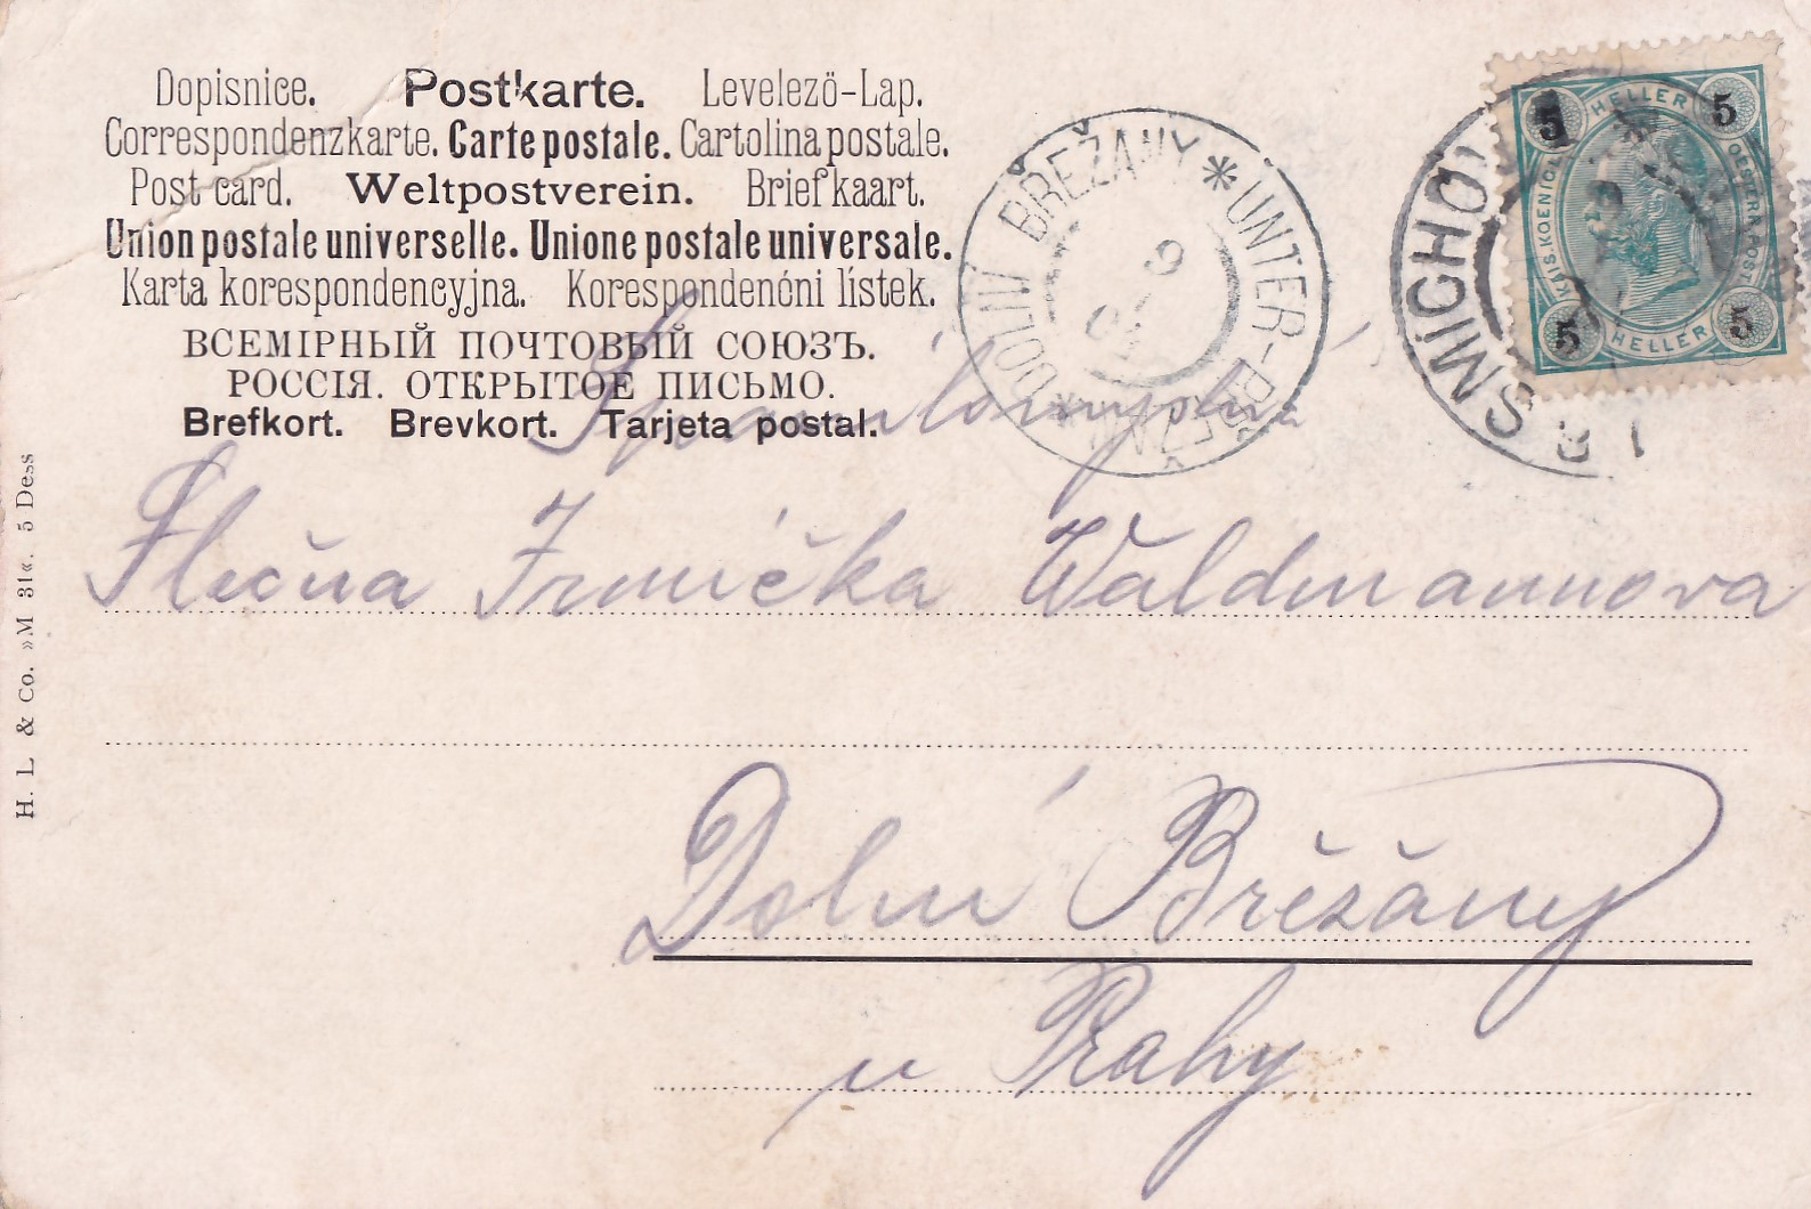 Dopisnice. Postkarte. Levelező-Lap.
Correspondenzkarte. Carte postale. Cartolina postale.
Post card. Weltpostverein. Briefkaart.
Union postale universelle. Unione postale universale.
Karta korespondencyjna. Korespondenćni lístek.
ВСЕМІРНЫЙ ПОЧТОВЫЙ СОЮЗЪ.
РОССІЯ. ОТКРЫТОЕ ПИСЬМО.
Brefkort. Brevkort. Tarjeta postal.
DOLIVÍ BŘEŽANY * UNTER-BŘEŽAN *
SMÍCHOV
5 HELLER 5
KAIS. KOENIGL. OESTERR. POST
5 HELLER 5
Slečna Irmička Waldmannova
Dolní Břežany
u Prahy
H. L & Co. »M 31«. 5 Dess